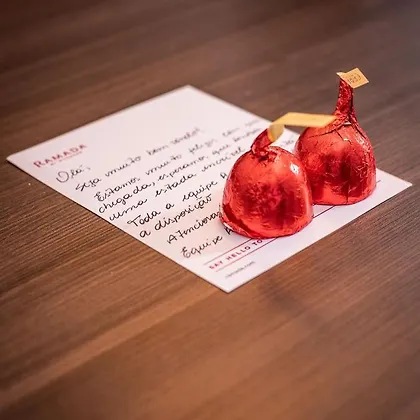 RAMADA
BY WYNDHAM
Olá,
Seja muito bem vindo!
Estamos muito felizes com sua
chegada, esperamos que
uma estada incrível
Toda a equipe
à disposição
Atencios
Equipe
SAY HELLO TO
ramada.com